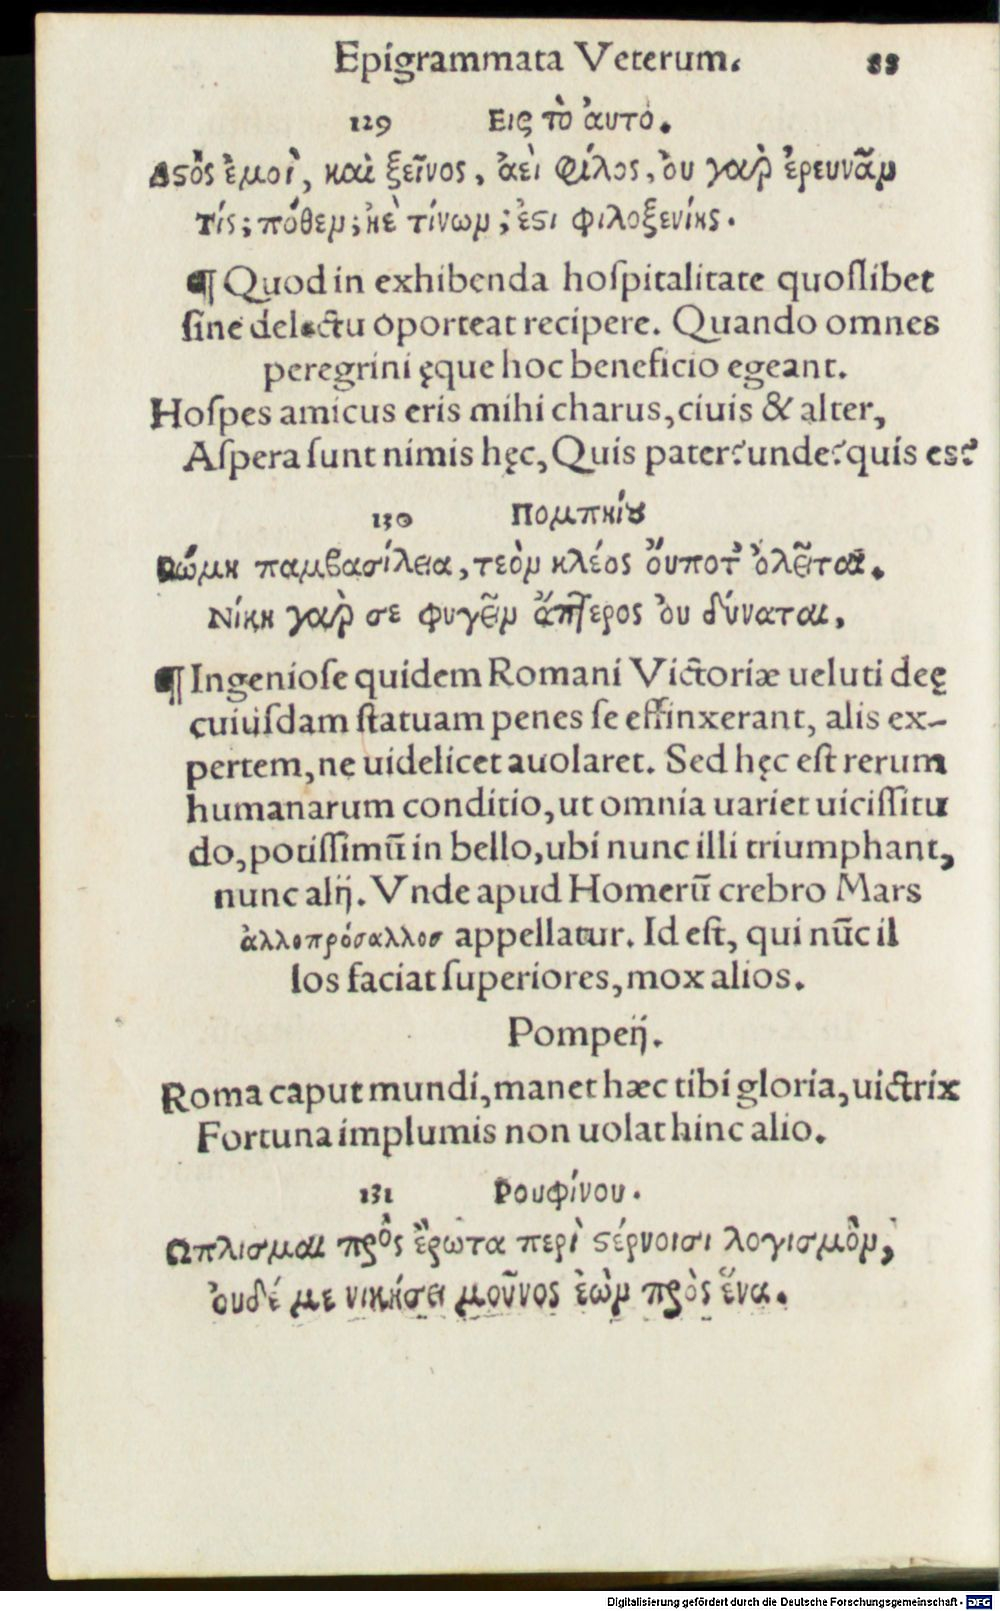 Epigrammata Veterum. 88
129 Εις τὸ ἀυτό.
Αϛὸς ἐμοὶ, καὶ ξεῖνος, ἀεὶ φίλος, ὀυ γαρ̀ ἐρευνᾶμ
Τίς; πόθεμ; ἠὲ τίνωμ; ἐϛι φιλοξενίης.
¶ Quod in exhibenda hoſpitalitate quoſlibet
ſine delectu oporteat recipere. Quando omnes
peregrini ęque hoc beneficio egeant.
Hoſpes amicus eris mihi charus, ciuis & alter,
Aſpera ſunt nimis hęc, Quis pater? unde? quis es?
130 Πομπηίȣ
Ρώμη παμβασίλεια, τεὸμ κλέος ὄυποτ' ὀλεῖται.
Νίκη γαρ̀ σε φυγεῖμ ἄπτερος ὀυ δύναται.
¶ Ingenioſe quidem Romani Victoriæ ueluti deę
cuiuſdam ſtatuam penes ſe effinxerant, alis ex-
pertem, ne uidelicet auolaret. Sed hęc eſt rerum
humanarum conditio, ut omnia uariet uiciſſitu
do, potiſſimũ in bello, ubi nunc illi triumphant,
nunc alij. Vnde apud Homerũ crebro Mars
ἀλλοπρόσαλλοσ appellatur. Id eſt, qui nũc il
los faciat ſuperiores, mox alios.
Pompeij.
Roma caput mundi, manet hæc tibi gloria, uictrix
Fortuna implumis non uolat hinc alio.
131 Ρουφίνου.
Ωπλισμαι πρὸς ἔρωτα περὶ ϛέρνοισι λογισμὸμ,
ὀυδέ με νικήσει μοῦνος ἐὼμ πρὸς ἕνα.
Digitalisierung gefördert durch die Deutsche Forschungsgemeinschaft - DFG